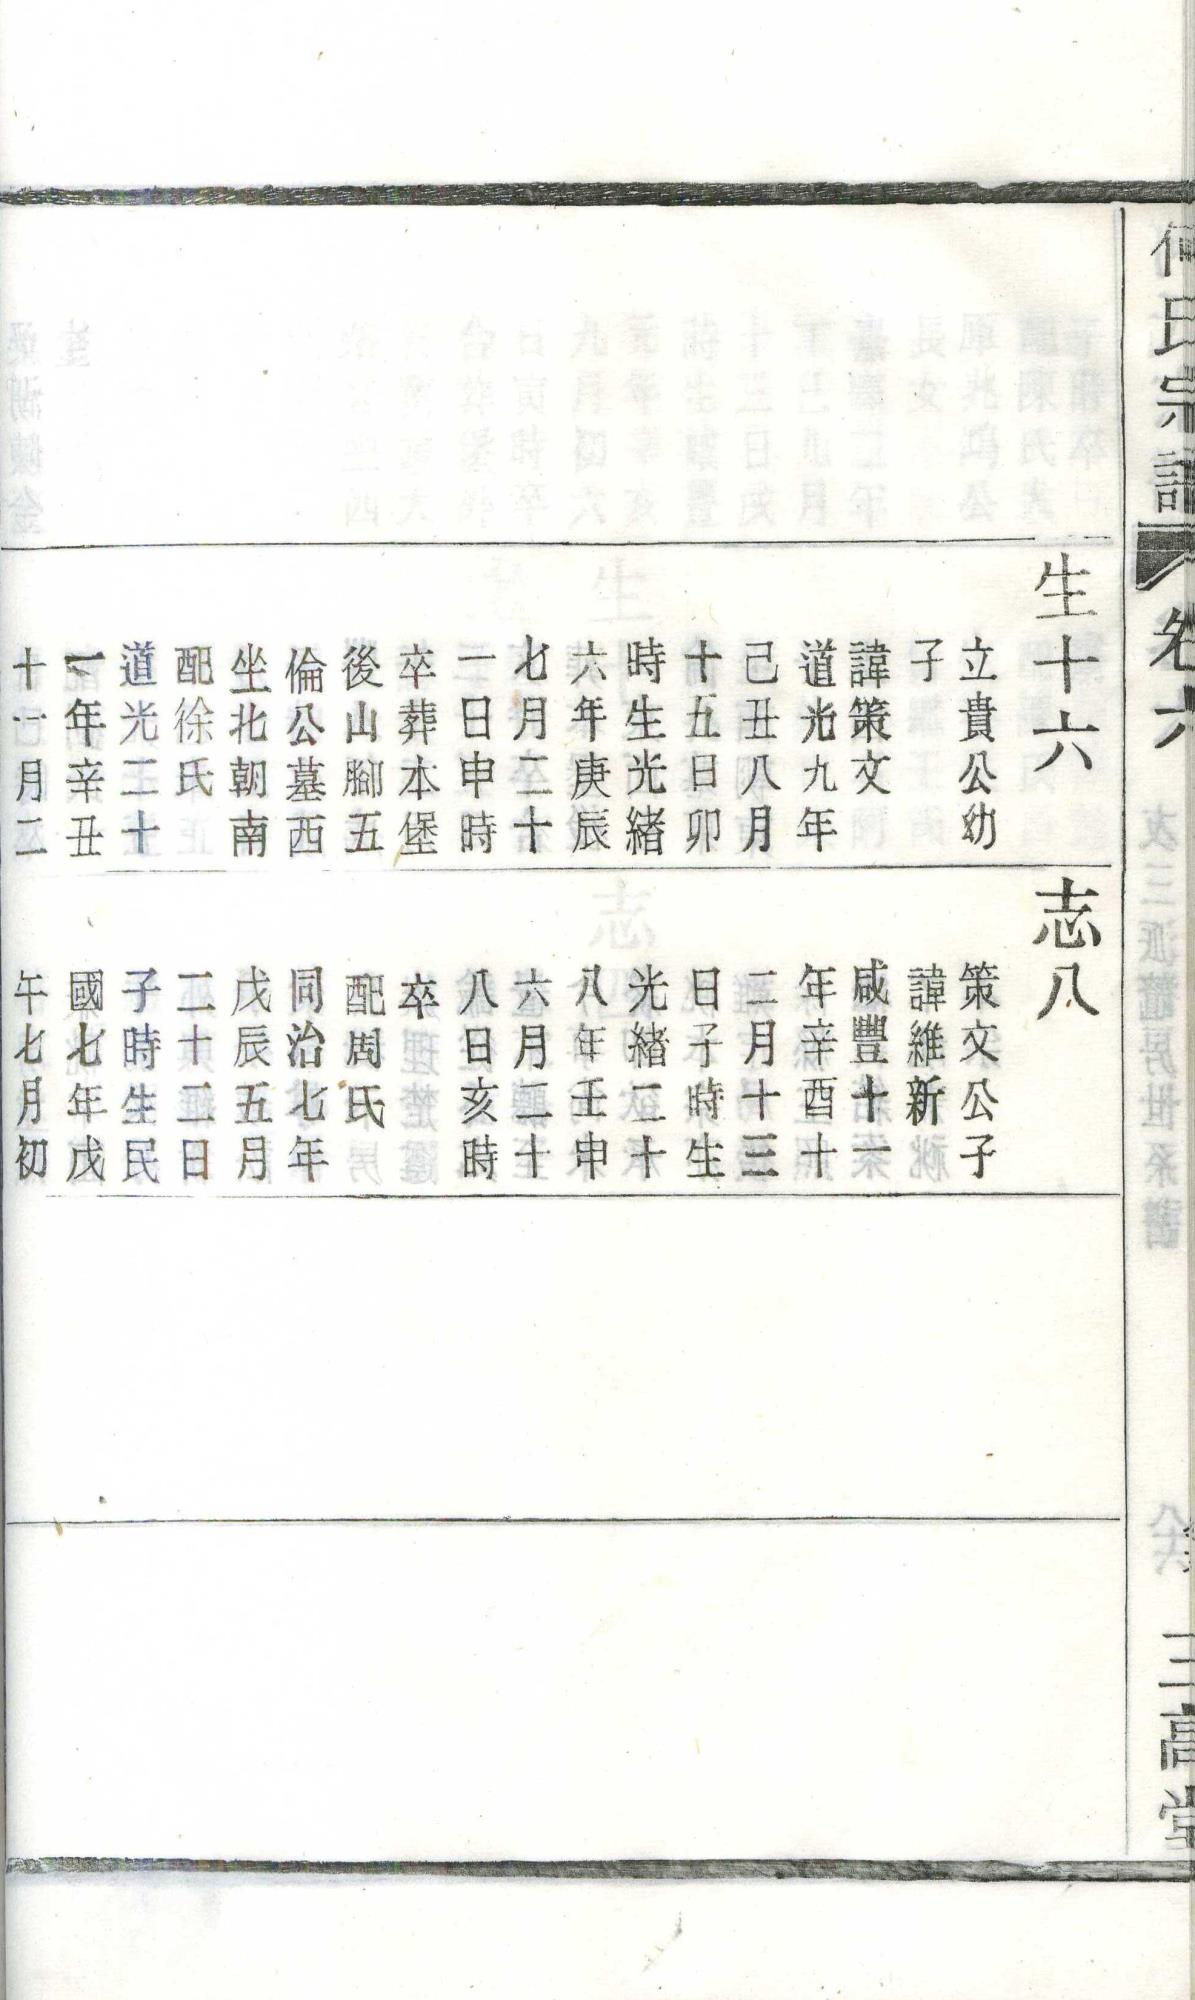 何氏宗譜
卷六
三高堂
生十六
立貴公幼
子
諱策文
道光九年
己丑八月
十五日卯
時生光緒
六年庚辰
七月二十
一日申時
卒葬本堡
後山腳五
倫公墓西
坐北朝南
配徐氏
道光二十
一年辛丑
十一月二
志八
策文公子
諱維新
咸豐十一
年辛酉十
二月十三
日子時生
光緒二十
八年壬申
六月二十
八日亥時
卒
配周氏
同治七年
戊辰五月
二十二日
子時生民
國七年戊
午七月初